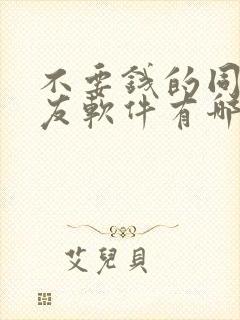 不要錢的同
友軟件有哪
艾兒貝